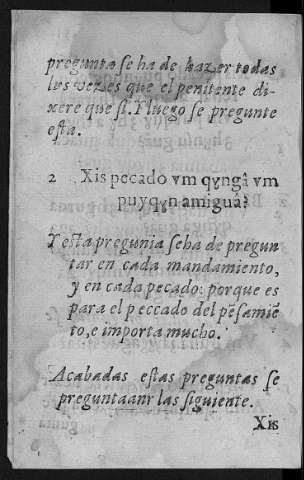 pregunta se ha de hazer todas
las vezes que el penitente di-
xere que si. Y luego se pregunte
esta.
2 Xis pecado vm qųngâ vm
puyqųn amigua?
Y esta pregunta seha de pregun
tar en cada mandamiento,
y en cada pecado: porque es
para el peccado del pẽsamiẽ
to, e importa mucho.
Acabadas estas preguntas se
preguntaanr las siguiente.
Xis